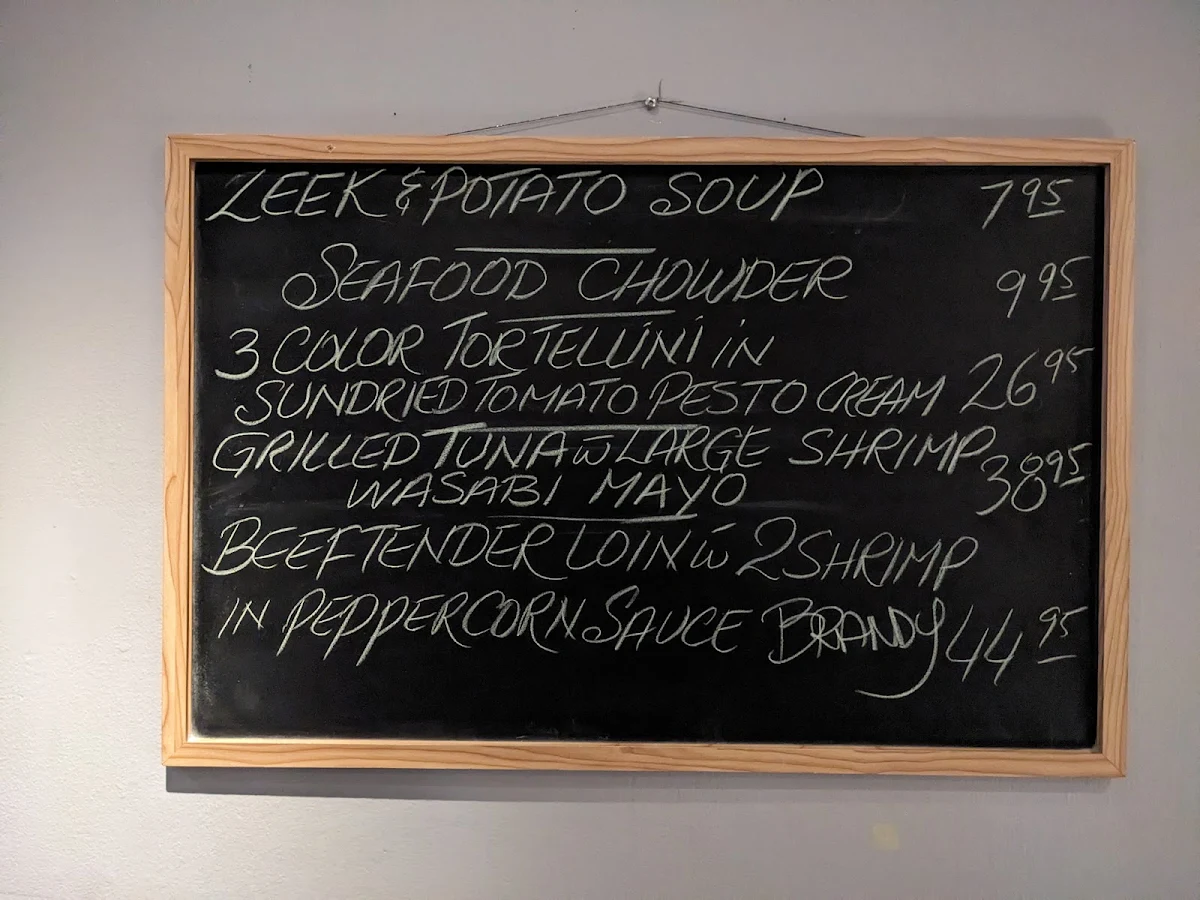 LEEK & POTATO SOUP 7 95
SEAFOOD CHOWDER 9 95
3 COLOR TORTELLINI IN
SUNDRIED TOMATO PESTO CREAM 26 95
GRILLED TUNA w LARGE SHRIMP
WASABI MAYO 38 95
BEEF TENDER LOIN w 2 SHRIMP
IN PEPPERCORN SAUCE BRANDY 44 95